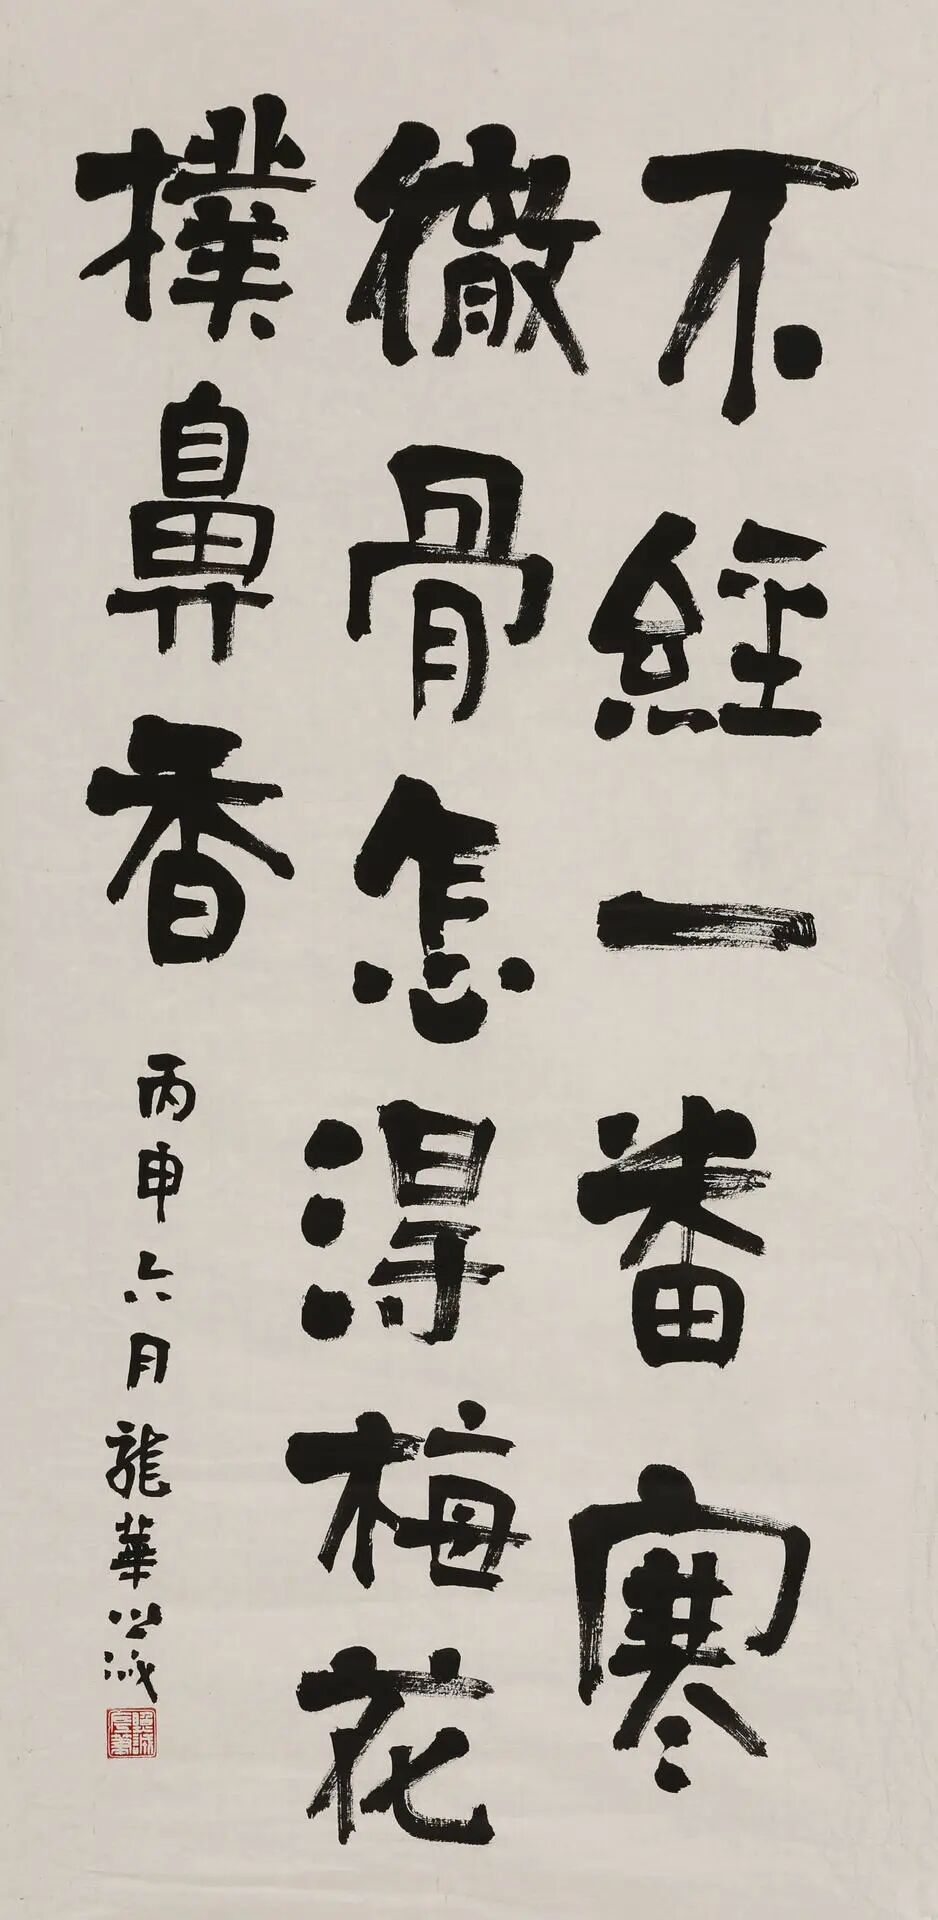 不經一番寒
徹骨怎得梅花
撲鼻香
丙申六月龍華照誠